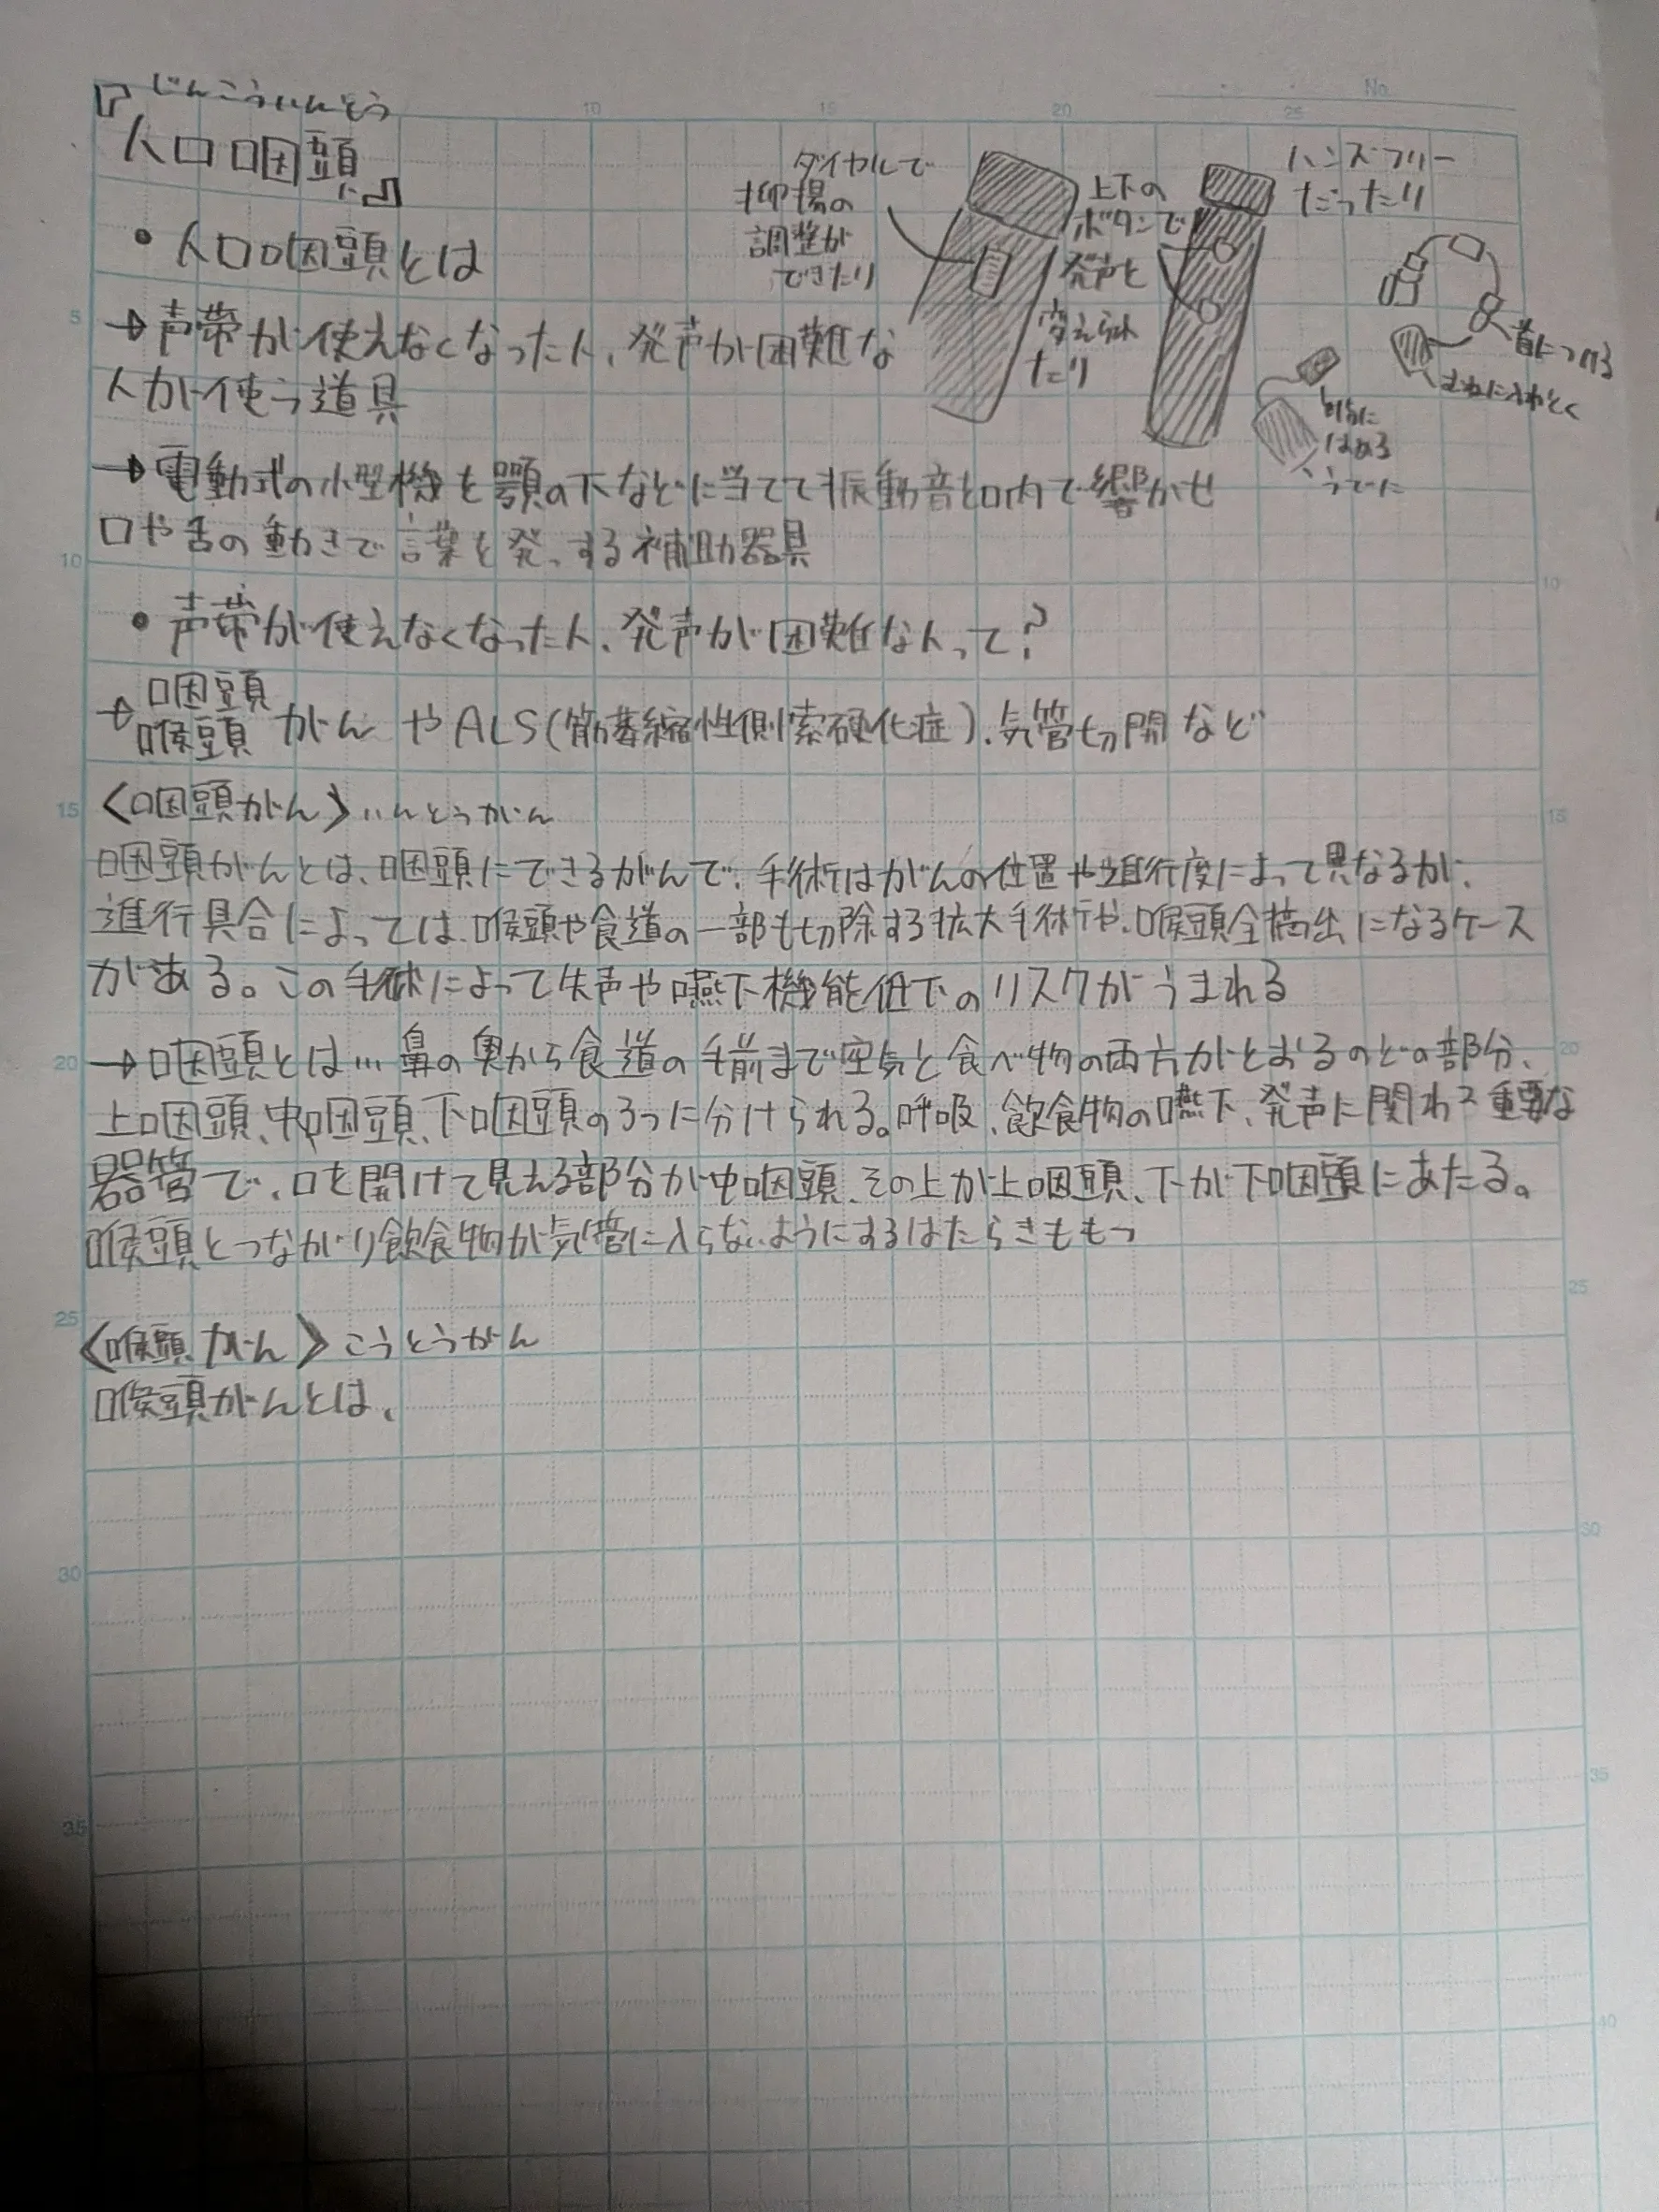 No.
『じんこういんとう
人口咽頭』
・人口咽頭とは
→声帯が使えなくなった人、発声が困難な
人が使う道具
ダイヤルで
抑揚の
調整が
できたり
上下の
ボタンで
発声を
変えられ
たり
ハンズフリー
だったり
首につける
むねに入れとく
はめる
うでに
→電動式の小型機を顎の下などに当てて振動音を口内で響かせ
口や舌の動きで言葉を発する補助器具
・声帯が使えなくなった人、発声が困難な人って?
→咽頭
喉頭がんやALS(筋萎縮性側索硬化症)、気管切開など
〈咽頭がん〉いんとうがん
咽頭がんとは、咽頭にできるがんで、手術はがんの位置や進行度によって異なるが、
進行具合によっては、喉頭や食道の一部も切除する拡大手術や、喉頭全摘出になるケース
がある。この手術によって失声や嚥下機能低下のリスクがうまれる
→咽頭とは…鼻の奥から食道の手前まで空気と食べ物の両方がとおるのどの部分、
上咽頭、中咽頭、下咽頭の3つに分けられる。呼吸、飲食物の嚥下、発声に関わる重要な
器管で、口を開けて見える部分が中咽頭、その上が上咽頭、下が下咽頭にあたる。
喉頭とつながり飲食物が気管に入らないようにするはたらきももつ
〈喉頭がん〉こうとうがん
喉頭がんとは、